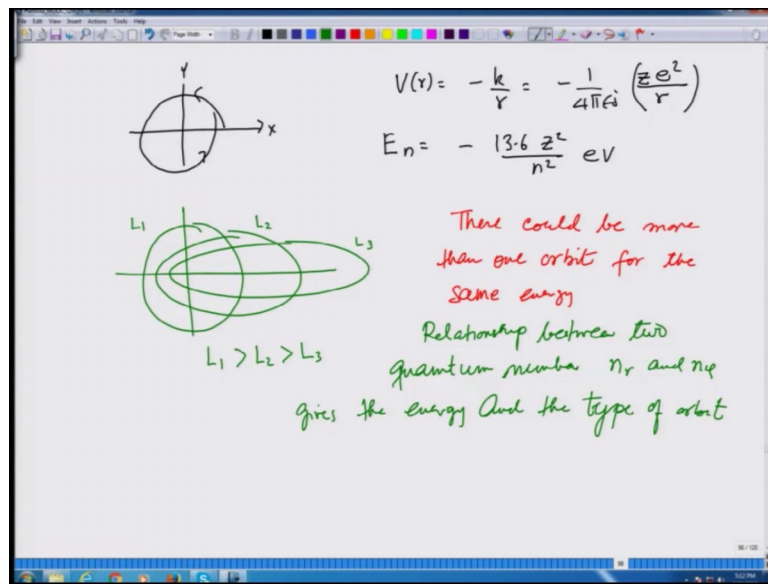 File Edit View Insert Actions Tools Help
Page Width
Y
x
V(r) = - k/r = - 1/4πε₀ (ze²/r)
Eₙ = - 13.6 z²/n² eV
L₁
L₂
L₃
L₁ > L₂ > L₃
There could be more
than one orbit for the
same energy
Relationship between two
quantum number nᵣ and nφ
gives the energy And the type of orbit
98 / 120
5:12 PM